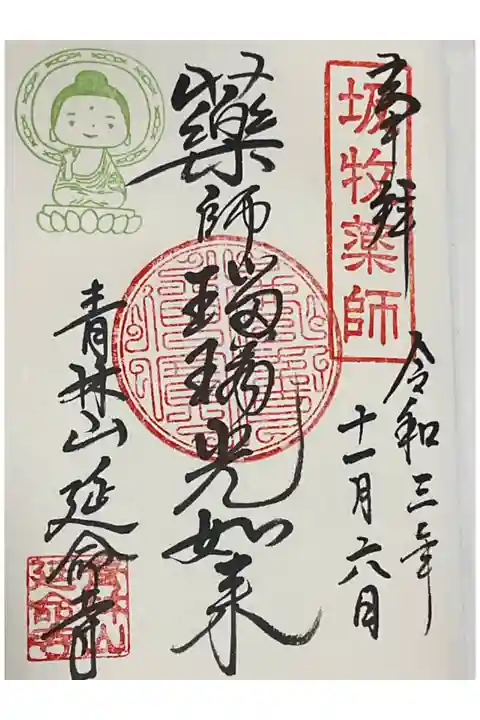 奉拝
牧薬師
令和三年
十一月六日
藥師瑠璃光如来
青林山延命寺
青林山
延命寺